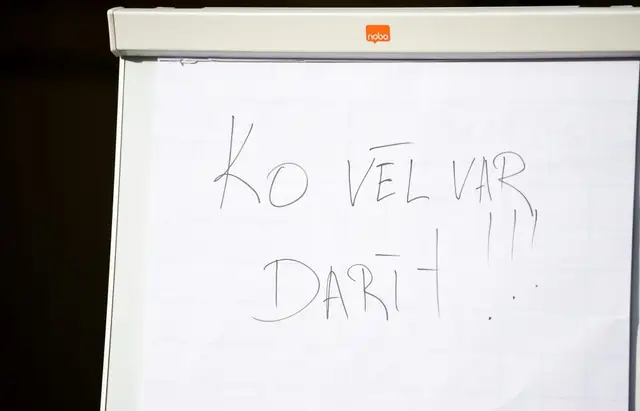 nobo
KO VĒL VAR
DARĪT!!!